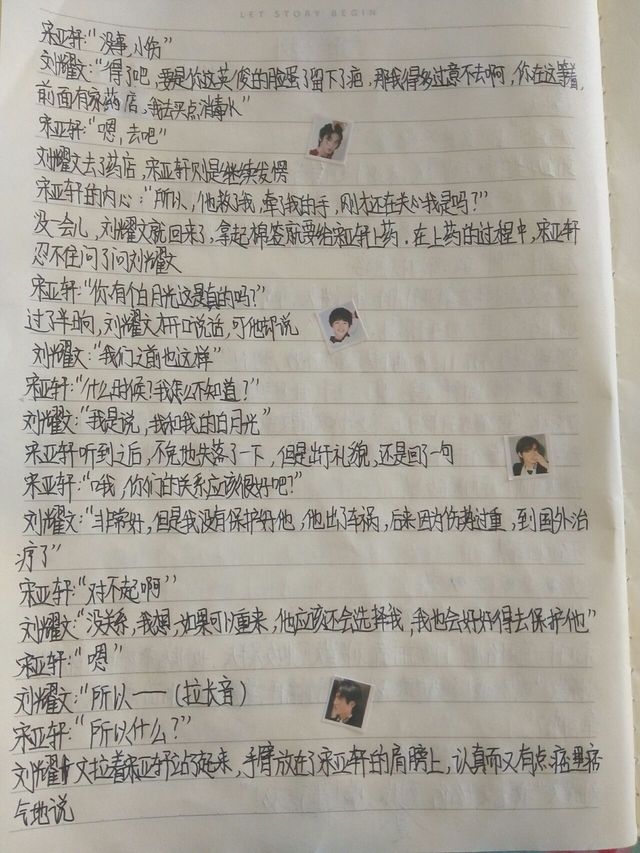 LET STORY BEGIN
宋亚轩:“没事,小伤”
刘耀文:“得了吧,要是你这英俊的脸蛋了留下了疤,那我得多过意不去啊,你在这等着,
前面有家药店,我去买点消毒水”
宋亚轩:“嗯,去吧”
刘耀文去了药店,宋亚轩则是继续发愣
宋亚轩的内心:“所以,他救了我,牵了我的手,刚才还在关心我是吗?”
没一会儿,刘耀文就回来了,拿起棉签就要给宋亚轩上药.在上药的过程中,宋亚轩
忍不住问了问刘耀文
宋亚轩:“你有个白月光这是真的吗?”
过了半晌,刘耀文才开口说话,可他却说
刘耀文:“我们之前也这样”
宋亚轩:“什么时候?我怎么不知道?”
刘耀文:“我是说,我和我的白月光”
宋亚轩听到之后,不免地失落了一下,但是出于礼貌,还是回了一句
宋亚轩:“哦,你们的关系应该很好吧?”
刘耀文:“非常好,但是我没有保护好他,他出了车祸,后来因为伤势过重,到国外治
疗了”
宋亚轩:“对不起啊”
刘耀文:“没关系,我想,如果可以重来,他应该还会选择我,我也会好好得去保护他”
宋亚轩:“嗯”
刘耀文:“所以——(拉长音)
宋亚轩:“所以什么?”
刘耀文拉着宋亚轩站了起来,手臂放在了宋亚轩的肩膀上,认真而又有点痞里痞
气地说